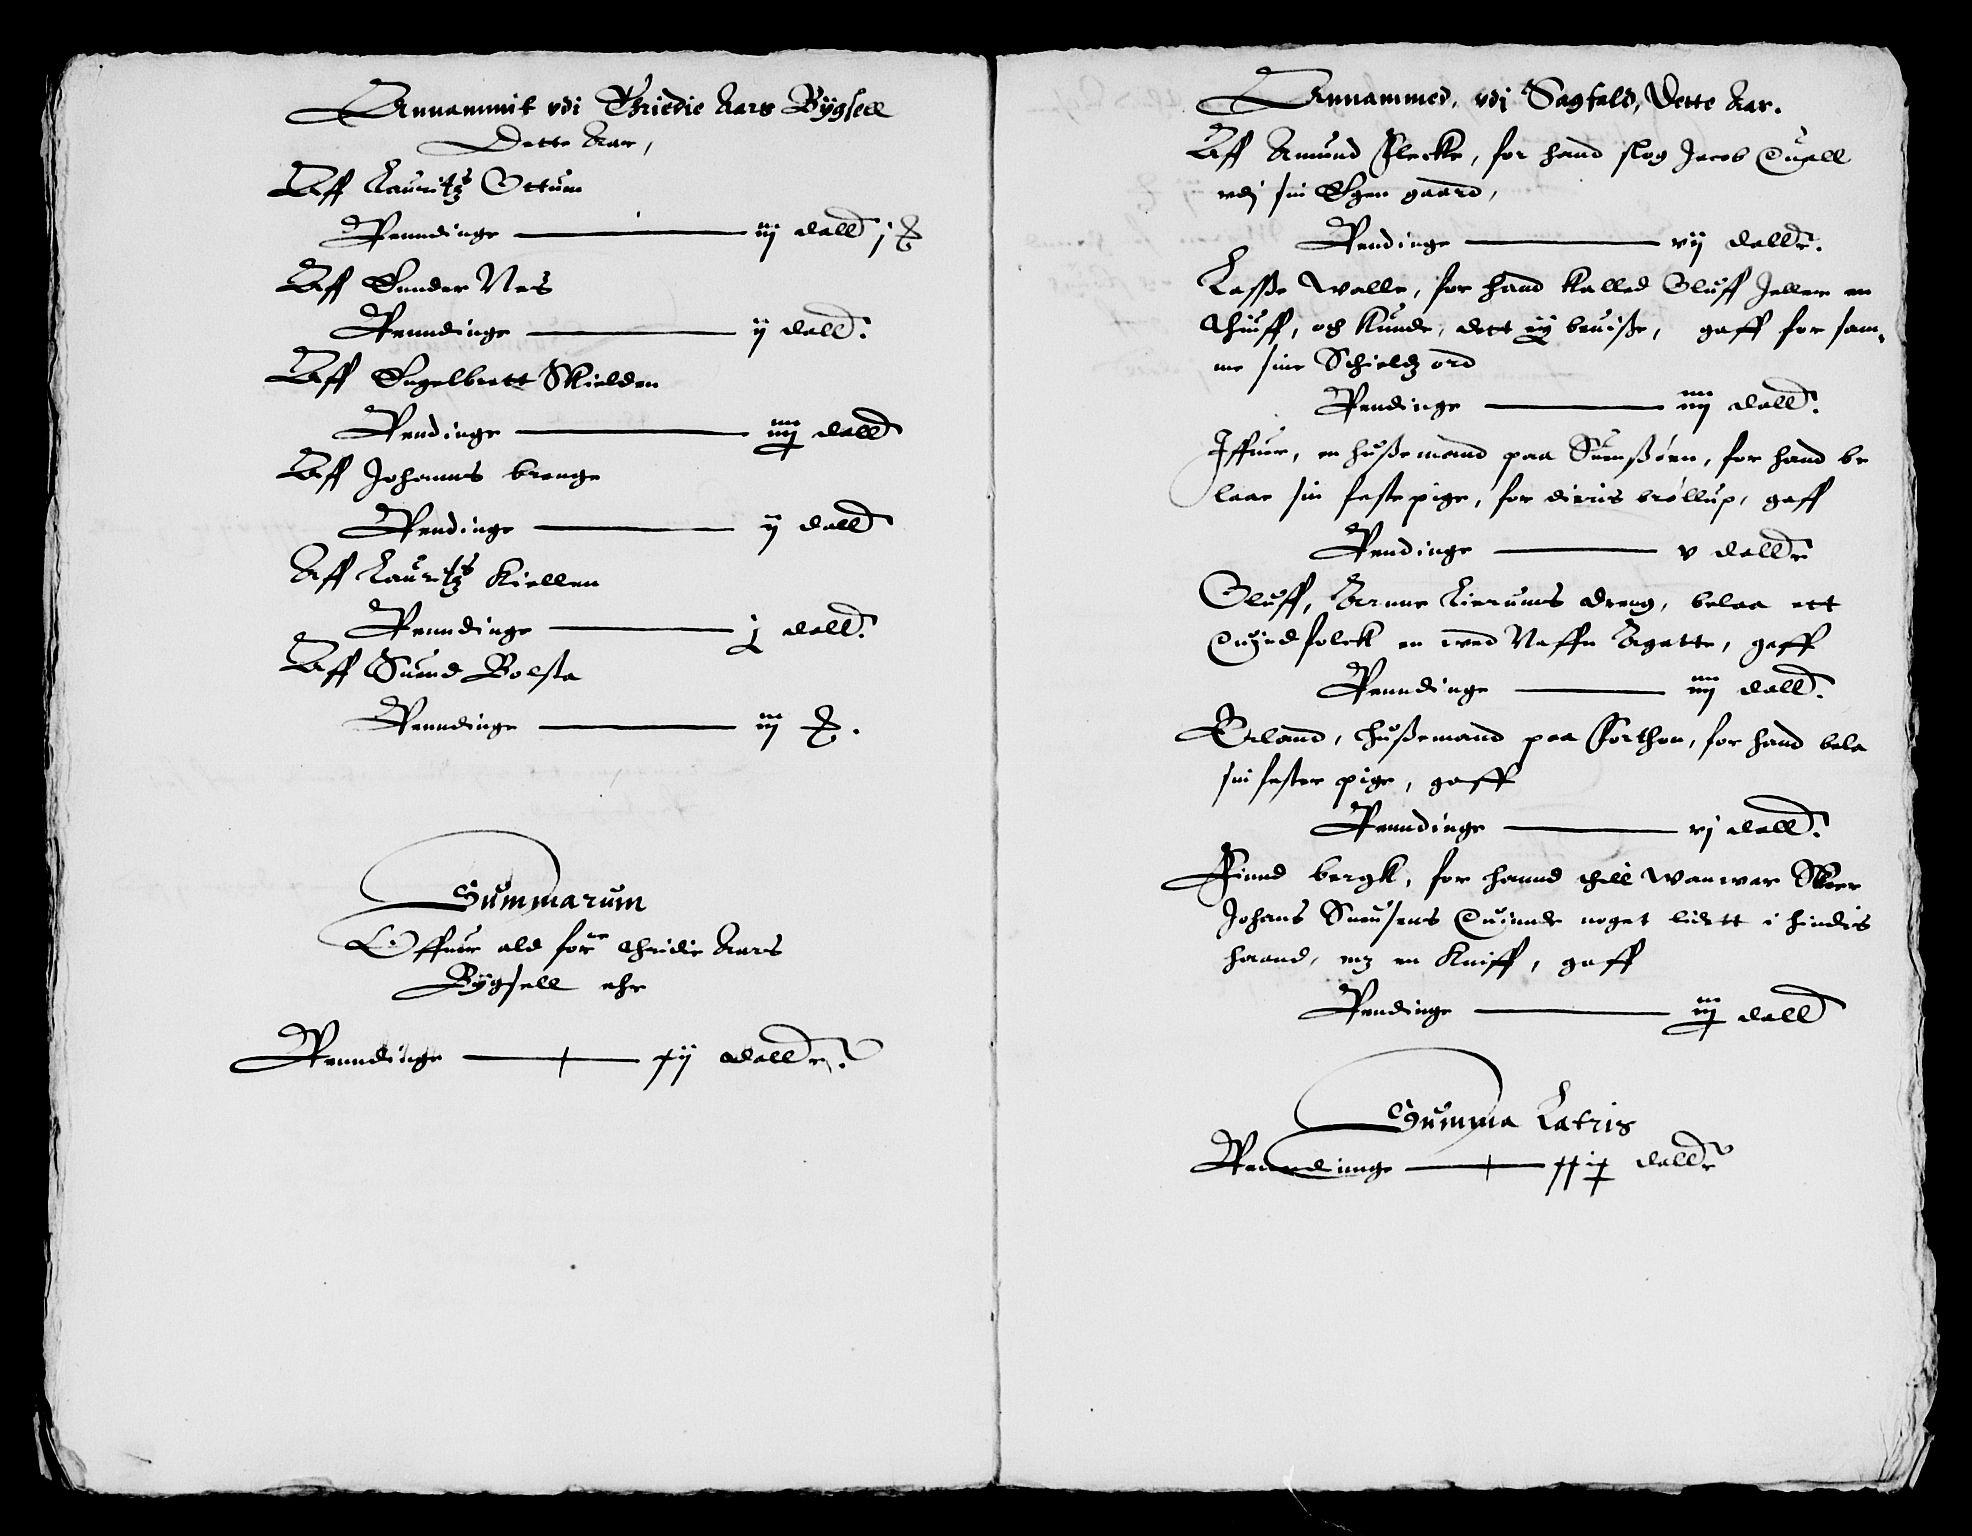 Annammit vdi Thriedie Aars Bÿgsell
Dette Aar,
Aff Lauritz Ottum
Penndinge iij dall j
Aff Sunder Nes
Penndinge ij dall.
Aff Engelbrett Skielden
Pendinge iiij dall
Aff Johannes brenge
Pendinge ij dall
Aff Lauritz Kiellen
Penndinge j dall.
Aff Suend Bolsta
Penndinge iij
Summarum
Offuer ald forne thridie Aars
Bÿgsell ehr
Penndinge xij dallr.
Annammed, vdj Sagfald, Dette Aar.
Aff Amund Flecke, for hand slog Jacob Quall
vdj sin Egen gaard,
Pendinge vij dallr.
Lasße walle, for hand kalled Oluff Jeller en
thiuff, och kunde, dett eÿ beuiße, gaff for sam-
me sine Schieldz ord
Pendinge iiij dall.
Iffuer, en hußemand paa Suenßøen, for hand be
laae sin feste pige, for dieris brøllup, gaff
Pendinge v dallr
Oluff, Arnne Lierums dreng, belaa ett
Quindfolck en wed Naffn Agatte, gaff
Penndinge iiij dall.
Erland, hußemand paa Forthon, for hand bela
sin fester pige, gaff
Penndinge vj dall.
Find bergk, for hannd till wanwar Skeer
Johans Suensens Quinde noget lidett i hindis
haand, mz en Kniff, gaff
Pendinge iiij dall
Summa Latris
Penndinnge dallr